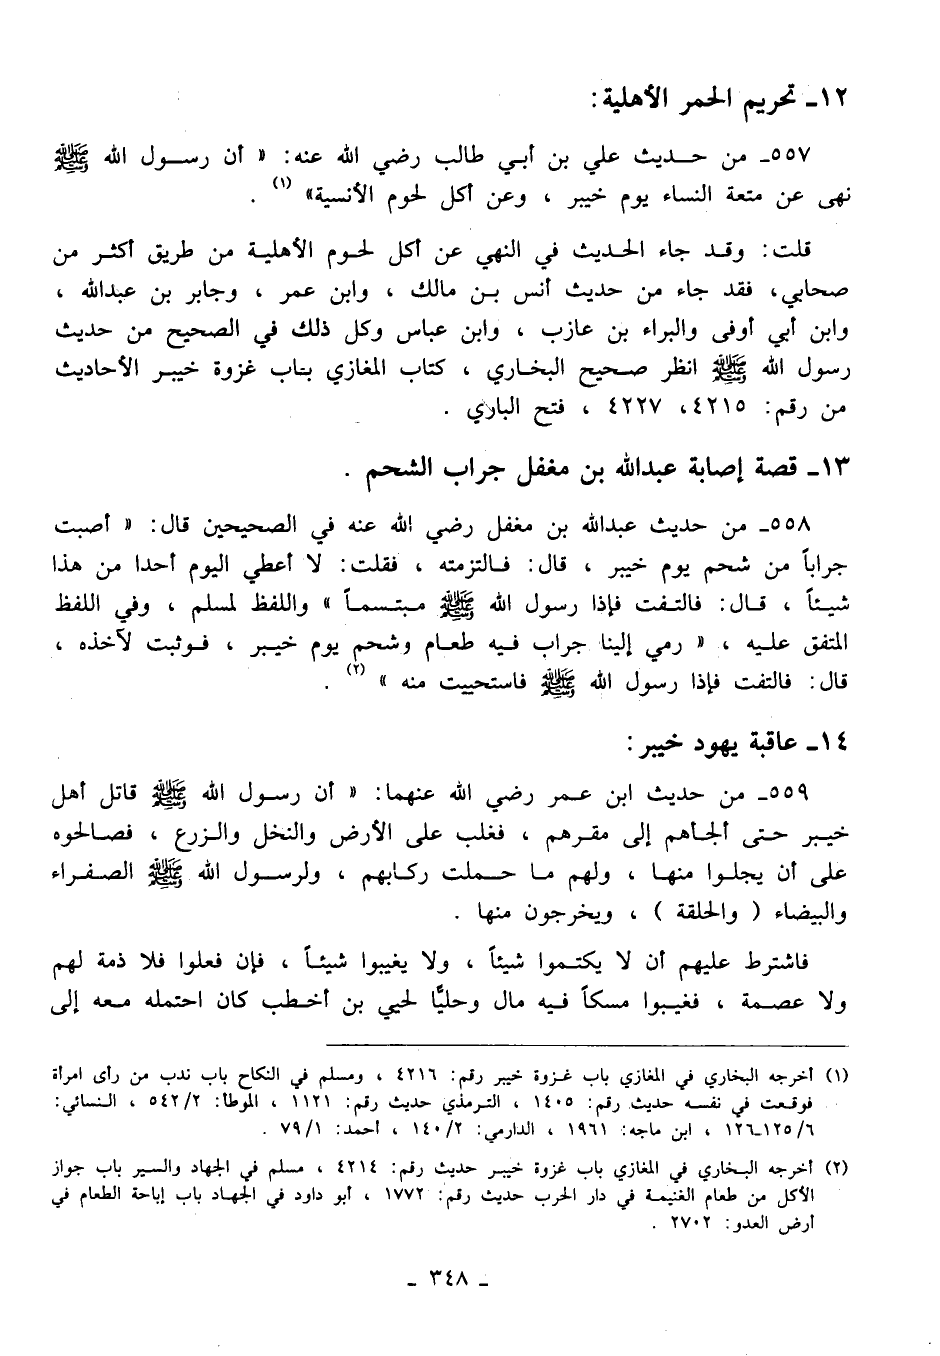 ١٢ـ تحريم الحمر الأهلية:
٥٥٧ـ من حديث علي بن أبي طالب رضي الله عنه: « أن رسول الله ﷺ
نهى عن متعة النساء يوم خيبر ، وعن أكل لحوم الأنسية» (١) .
قلت: وقد جاء الحديث في النهي عن أكل لحوم الأهلية من طريق أكثر من
صحابي، فقد جاء من حديث أنس بن مالك ، وابن عمر ، وجابر بن عبدالله ،
وابن أبي أوفى والبراء بن عازب ، وابن عباس وكل ذلك في الصحيح من حديث
رسول الله ﷺ انظر صحيح البخاري ، كتاب المغازي باب غزوة خيبر الأحاديث
من رقم: ٤٢١٥، ٤٢٢٧ ، فتح الباري .
١٣ـ قصة إصابة عبدالله بن مغفل جراب الشحم .
٥٥٨ـ من حديث عبدالله بن مغفل رضي الله عنه في الصحيحين قال: « أصبت
جراباً من شحم يوم خيبر ، قال: فالتزمته ، فقلت: لا أعطي اليوم أحدا من هذا
شيئاً ، قال: فالتفت فإذا رسول الله ﷺ مبتسماً » واللفظ لمسلم ، وفي اللفظ
المتفق عليه ، « رمي إلينا جراب فيه طعام وشحم يوم خيبر ، فوثبت لآخذه ،
قال: فالتفت فإذا رسول الله ﷺ فاستحييت منه » (٢) .
١٤ـ عاقبة يهود خيبر:
٥٥٩ـ من حديث ابن عمر رضي الله عنهما: « أن رسول الله ﷺ قاتل أهل
خيبر حتى ألجأهم إلى مقرهم ، فغلب على الأرض والنخل والزرع ، فصالحوه
على أن يجلوا منها ، ولهم ما حملت ركابهم ، ولرسول الله ﷺ الصفراء
والبيضاء ( والحلقة ) ، ويخرجون منها .
فاشترط عليهم أن لا يكتموا شيئاً ، ولا يغيبوا شيئاً ، فإن فعلوا فلا ذمة لهم
ولا عصمة ، فغيبوا مسكاً فيه مال وحليًّا لحيي بن أخطب كان احتمله معه إلى
(١) أخرجه البخاري في المغازي باب غزوة خيبر رقم: ٤٢١٦ ، ومسلم في النكاح باب ندب من رأى امرأة
فوقعت في نفسه حديث رقم: ١٤٠٥ ، الترمذي حديث رقم: ١١٢١ ، الموطأ: ٥٤٢/٢ ، النسائي:
١٢٥/٦ـ١٢٦ ، ابن ماجه: ١٩٦١ ، الدارمي: ١٤٠/٢ ، أحمد: ٧٩/١ .
(٢) أخرجه البخاري في المغازي باب غزوة خيبر حديث رقم: ٤٢١٤ ، مسلم في الجهاد والسير باب جواز
الأكل من طعام الغنيمة في دار الحرب حديث رقم: ١٧٧٢ ، أبو داود في الجهاد باب إباحة الطعام في
أرض العدو: ٢٧٠٢ .
ـ ٣٤٨ ـ